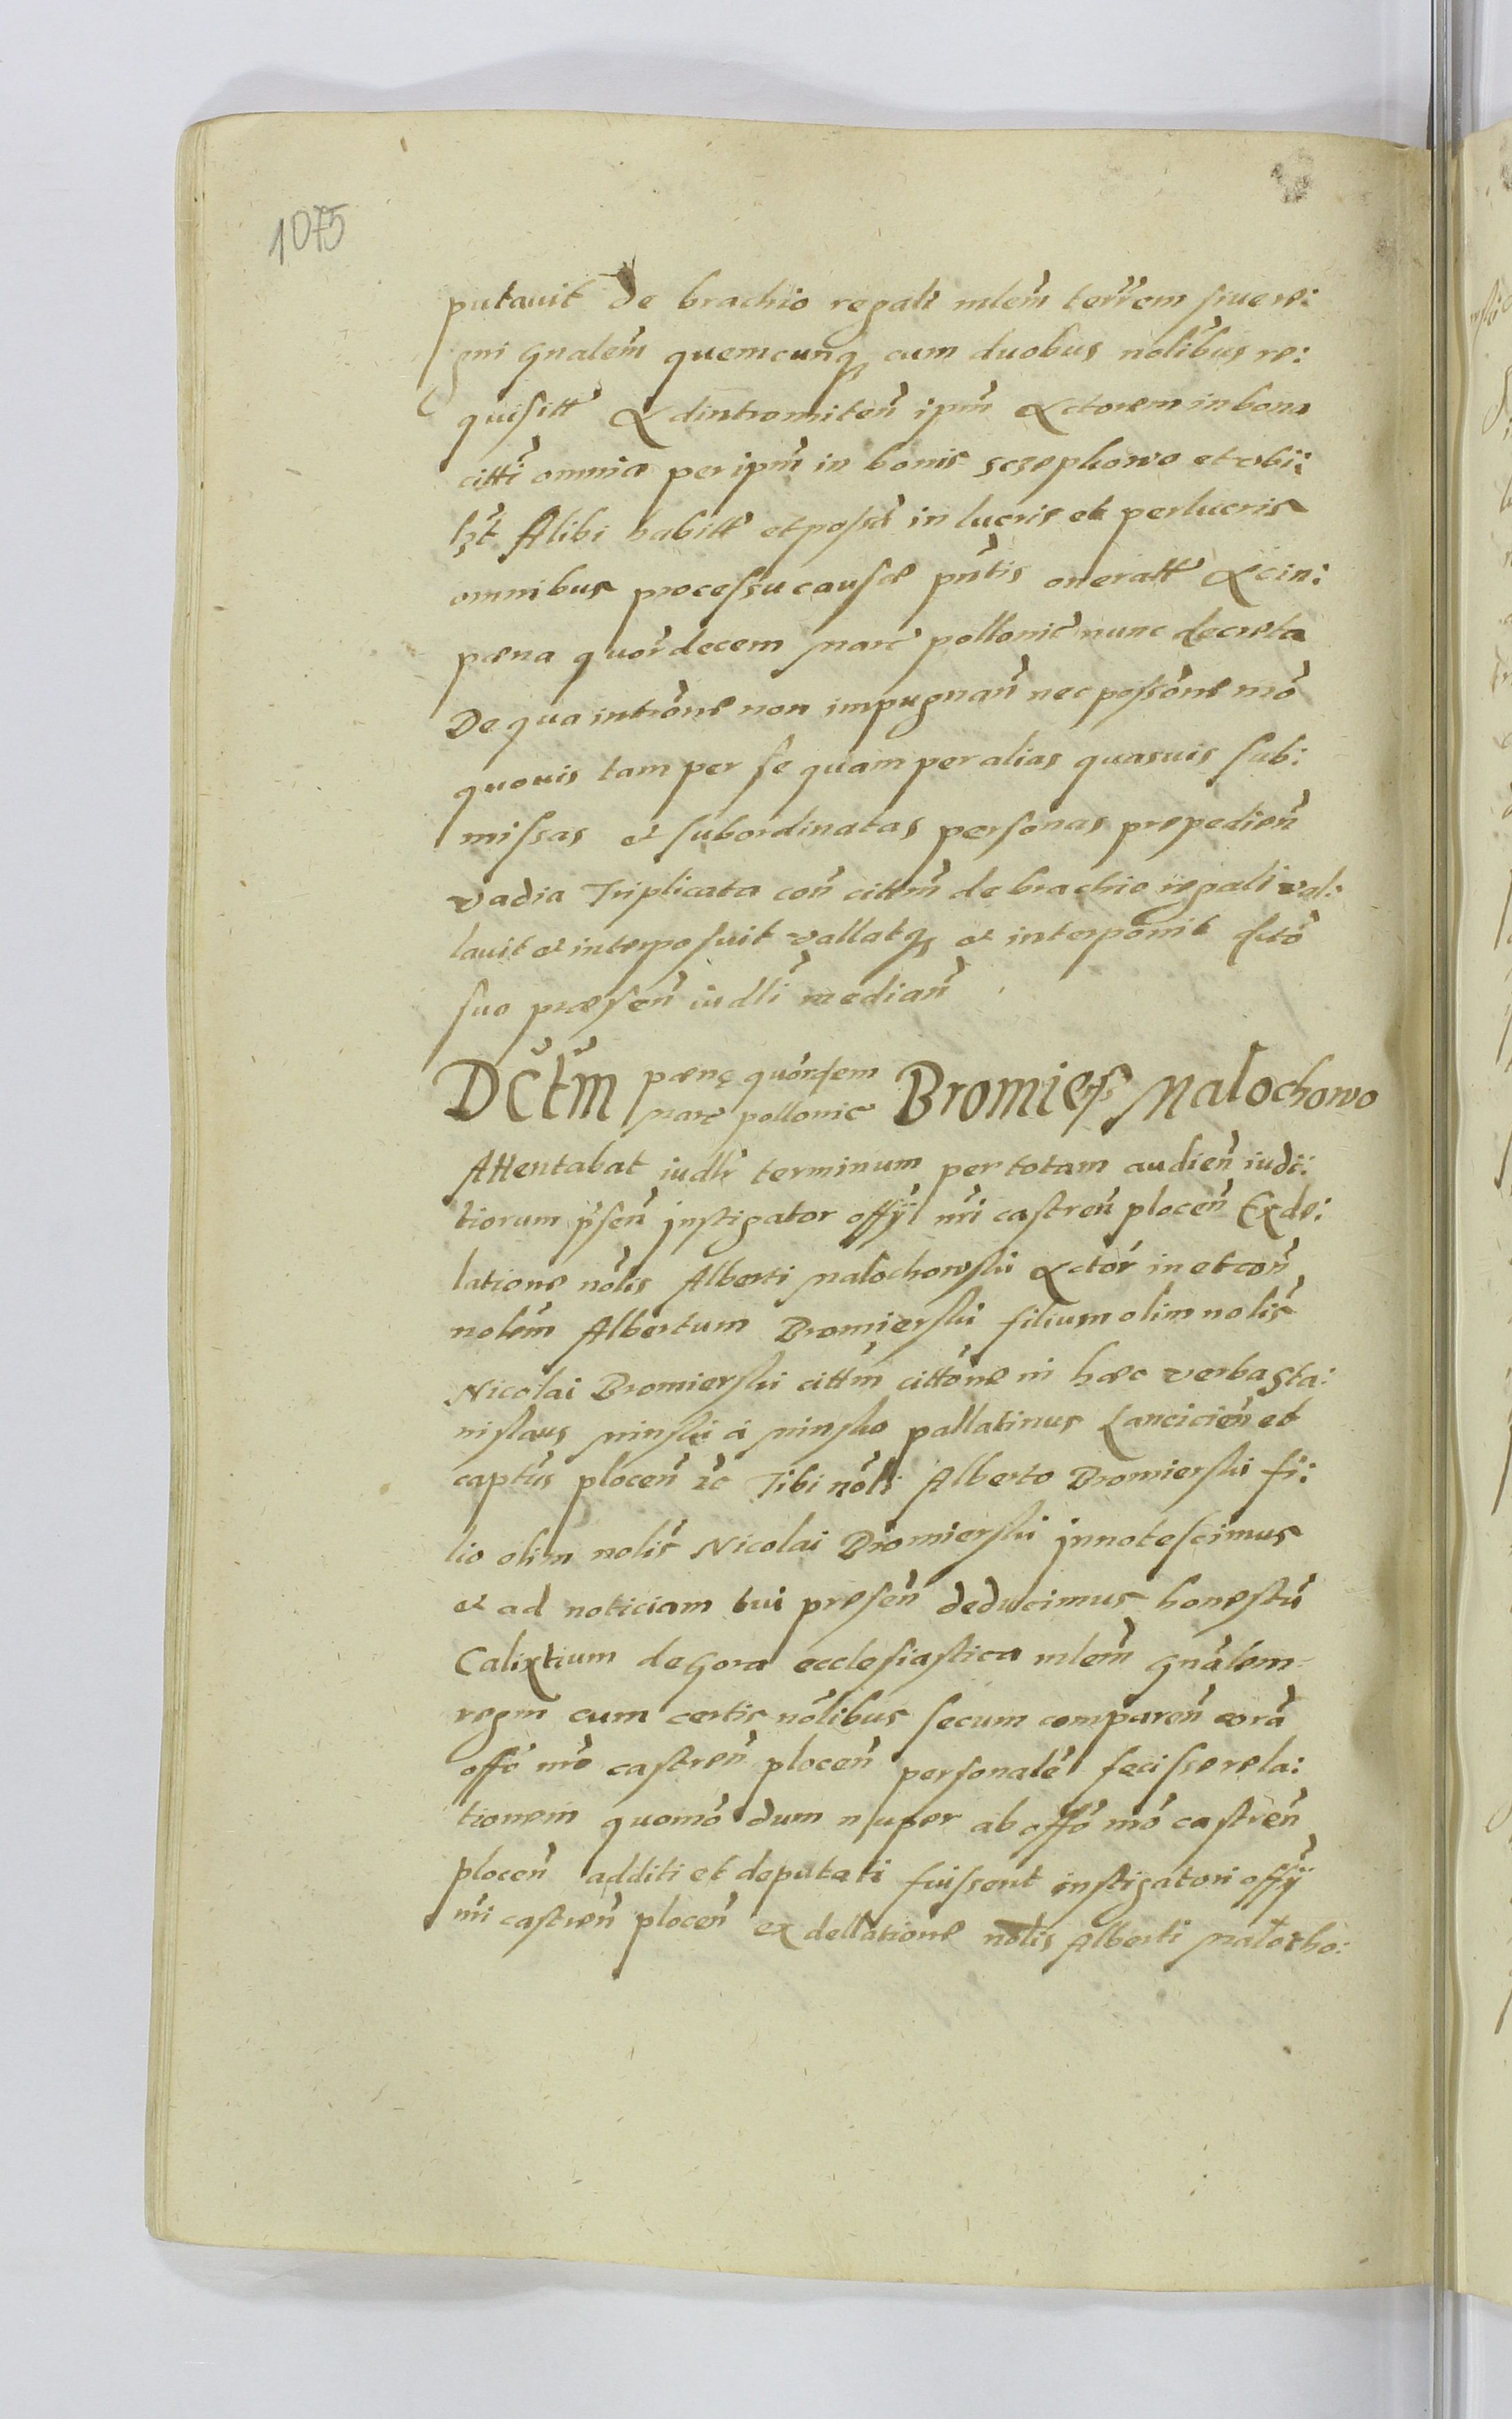 1075
putauit de brachio regali mlem̃ terrem siue re:
gni Gnalem̃ quemcunq cum duobus nolibus re:
quisitt Adintromiten̄ ipm̄ Actorem in bona
citti omnia per ipm̄ in bonis et vbi:
lzt Alibi habitt et poss in lucris et perlucris
omnibus processu causæ pn̄tis oneratt Ac in:
pæna quordecem marc pollonic nunc decreta
De qua introne non impugnan̄ nec possone mō
quouis tam per se quam per alias quasuis sub:
missas et subordinatas personas prepedien̄
vadia Triplicata con̄ cittm̄ de brachio regali val:
lauit et interposuit vallatq et interponit dcto
suo præsen̄ iudli median̄
Dctm pænę quordem marc pollonic Bromiers Malochowo
Attentabat iudlr terminum per totam audien̄ iudi:
tiorum psen̄ jnstigator offÿ nr̄i castren̄ plocen̄ Ex de:
latione nolis Alberti Malochowski Actor in et con̄
nolem̄ Albertum Bromierski filium olim nolis
Nicolai Bromierski cittm̄ cittone in hæc verba Sta:
nislaus Minski à Minsko pallatinus Lancicien̄ et
captus plocen̄ zc Tibi noli Alberto Bromierski fi:
lio olim nolis Nicolai Bromierski jnnotescimus
et ad noticiam tui presen̄ deducimus honestū
Calixtium de Gora ecclesiastica mlem̄ Gnalem
regni cum certis nolibus secum comparen̄ corā
offo nr̄o castren̄ plocen̄ personale fecisse rela:
tionem quomo dum nuper ab offo nr̄o castren̄
plocen̄ additi et deputati fuissent instigatori offÿ
nr̄i castren̄ plocen̄ ex dellatione nolis Alberti Malocho: